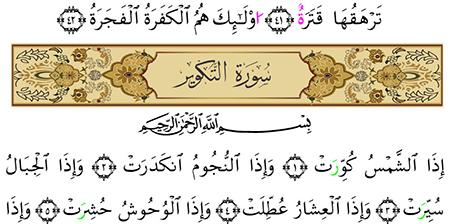 تَرْهَقُهَا قَتَرَةٌ ﴿٤١﴾ اُو۟لَٰٓئِكَ هُمُ الْكَفَرَةُ الْفَجَرَةُ ﴿٤٢﴾
سُورَةُ التَّكْوِيرِ
بِسْمِ اللَّهِ الرَّحْمَنِ الرَّحِيمِ
إِذَا الشَّمْسُ كُوِّرَتْ ﴿١﴾ وَإِذَا النُّجُومُ انكَدَرَتْ ﴿٢﴾ وَإِذَا الْجِبَالُ
سُيِّرَتْ ﴿٣﴾ وَإِذَا الْعِشَارُ عُطِّلَتْ ﴿٤﴾ وَإِذَا الْوُحُوشُ حُشِرَتْ ﴿٥﴾ وَإِذَا